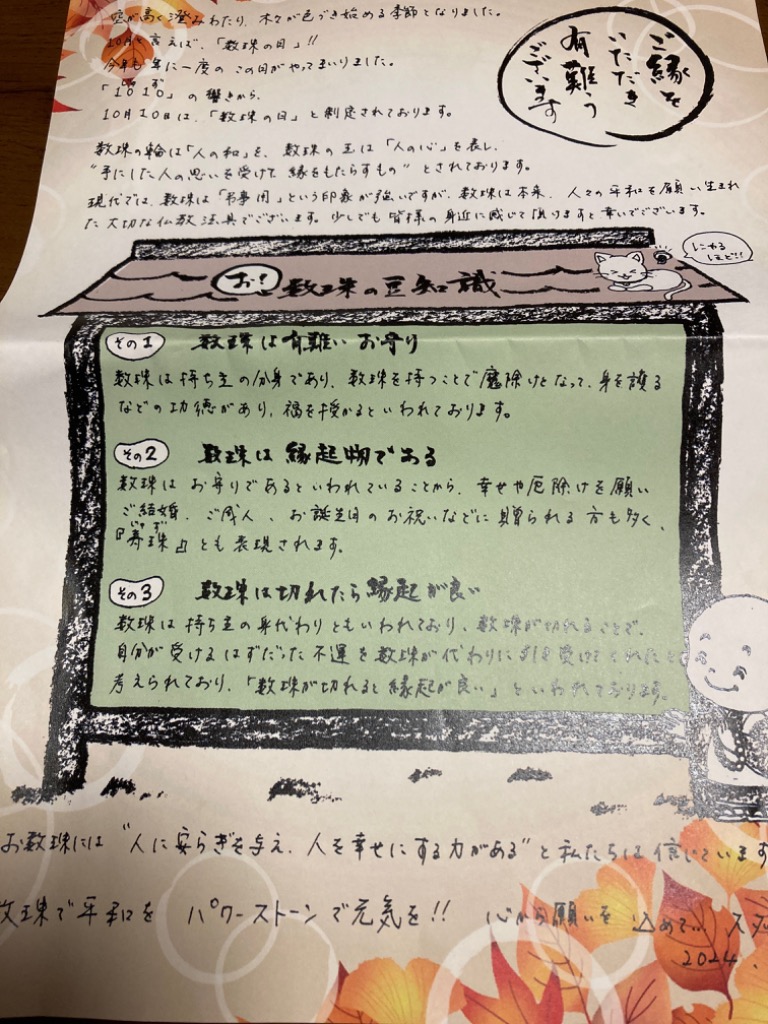 空が高く澄みわたり、木々が色づき始める季節となりました。
10月と言えば、「数珠の日」!!
今年も年に一度のこの日がやってまいりました。
じゅ ず
「1010」の響きから、
10月10日は、「数珠の日」と制定されております。
ご縁を
いただき
有難う
ございます
数珠の輪は「人の和」を、数珠の玉は「人の心」を表し、
“手にした人の思いを受けて縁をもたらすもの”とされております。
現代では、数珠は「弔事用」という印象が強いですが、数珠は本来、人々の平和を願い生まれ
た大切な仏教法具でございます。少しでも皆様の身近に感じて頂けますと幸いでございます。
お!数珠の豆知識
にゃる
ほど!!
その1 数珠は有難いお守り
数珠は持ち主の分身であり、数珠を持つことで魔除けとなって、身を護る
などの功徳があり、福を授かるといわれております。
その2 数珠は縁起物である
数珠はお守りであるといわれていることから、幸せや厄除けを願い
ご結婚、ご成人、お誕生日のお祝いなどに贈られる方も多く、
じゅ ず
『寿珠』とも表現されます。
その3 数珠は切れたら縁起が良い
数珠は持ち主の身代わりともいわれており、数珠が切れることで、
自分が受けるはずだった不運を数珠が代わりに引き受けてくれたと
考えられており、「数珠が切れると縁起が良い」といわれております。
お数珠には“人に安らぎを与え、人を幸せにする力がある”と私たちは信じています
数珠で平和を パワーストーンで元気を!! 心から願いを込めて… スタッ
2024.